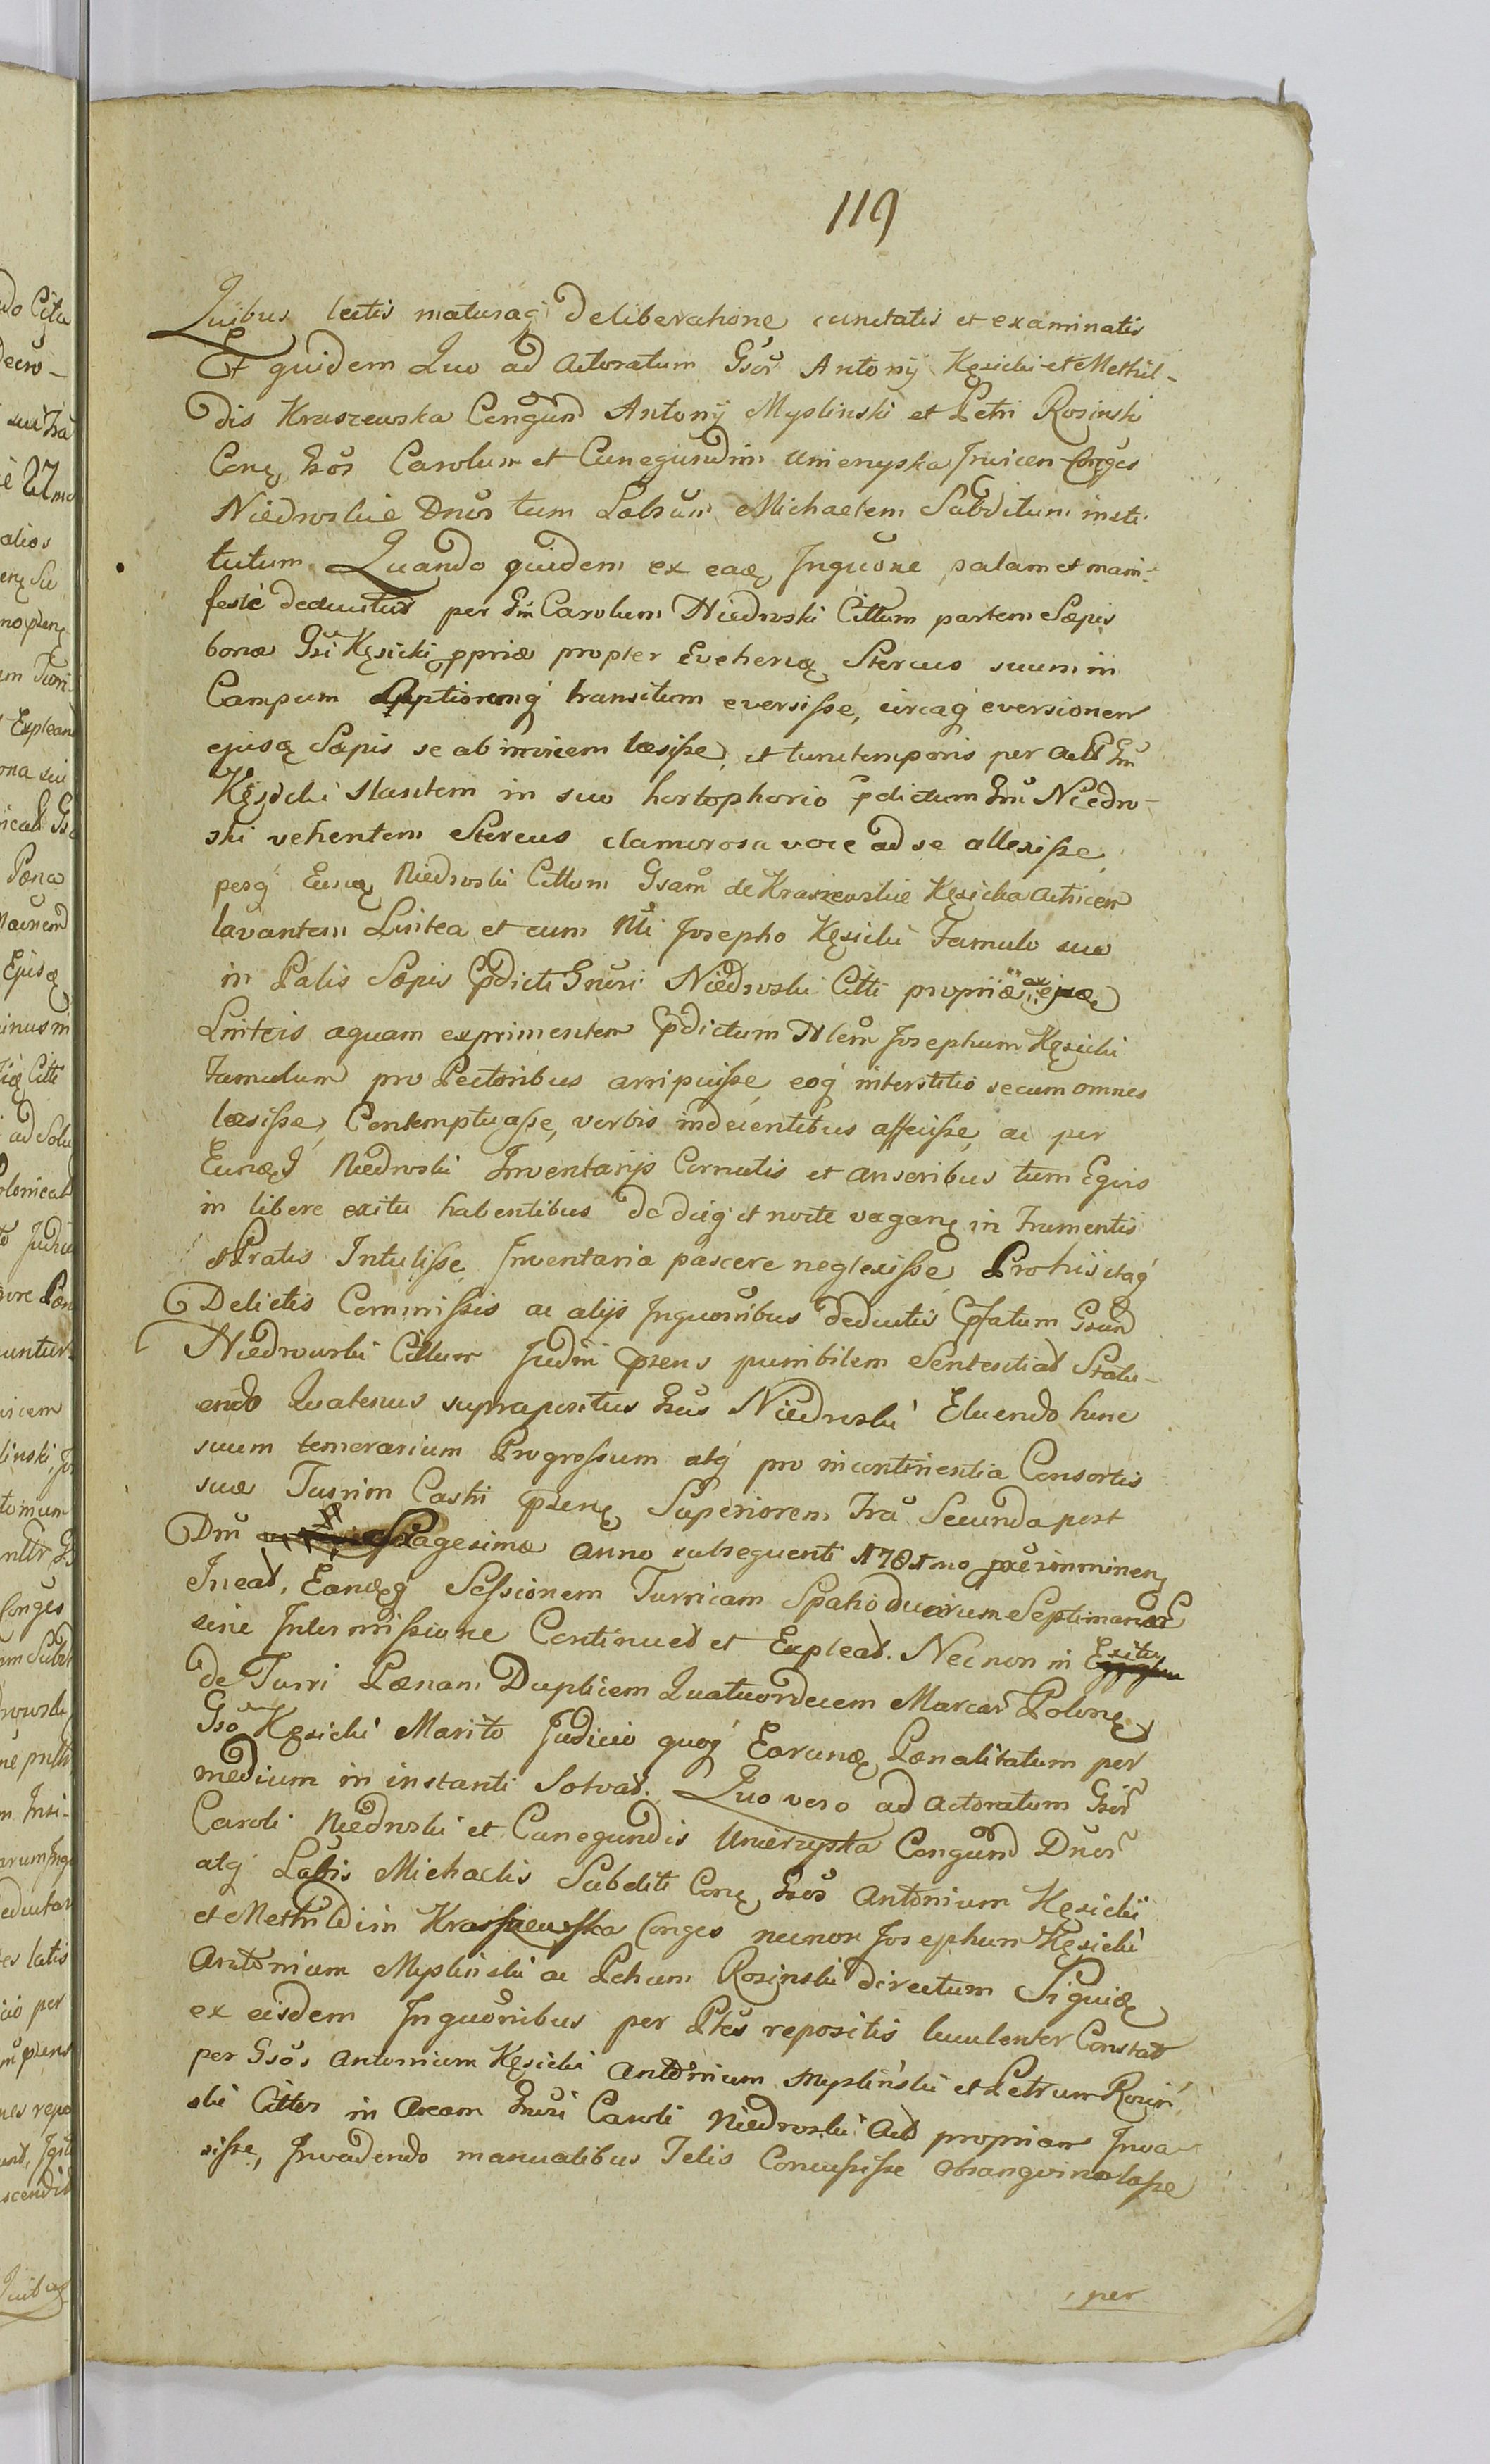 119
Quibus lectis maturaq deliberatione cunctatis et examinatis
Et quidem Quo ad Actoratum Gsor Antonij Kęsicki et Methil-
dis Kraszewska Congund Antonij Myslinski et Petri Rosinski
Conę Gsos Carolum et Cunegundim Unierzyska Invicem Conges
Niedroskie Dnos tum Labsum Michaelem Subditum insti-
tutum. Quando quidem ex eadę Inquone palam et mani-
festé deducitur per Gm Carolum Niedroski Cittum partem Sæpis
bonæ Gsi Kęsicki ppriæ propter Evehenę Stercus suum in
Campum Aptioremq transitum eversisse, circaq eversionem
ejusdę Sæpis se ab invicem læsisse, et tunc temporis per Act Gm
Kęsicki stantem in suo hortophorio pdictum Gm Niedro-
ski vehentem Stercus clamorosa voce ad se allexisse,
pesq Eundę Niedroski Cittum Gsam de Kraszewskie Kęsicka Actricem
lavantem Lintea et cum Nli Josepho Kęsicki Famulo suo
in Palis Sæpis Pdicti Gnosi Niedroski Citti propriæ ex
Linteis aquam exprimentem Pdictum Nlem Josephum Kęsicki
Famulum pro Pectoribus arripuisse, eoq interstitio secum omnes
læsisse, Contemptuasse, verbis indecentibus affecisse, ac per
Eundę Niedroski Inventarijs Cornutis et anseribus tum Equis
in libere exitu habentibus de dieq et nocte vaganę in Frumentis
et Pratis Intulisse, Inventaria pascere neglexisse, Pro hisitaq
Delictis Commissis ac alijs Inquonibus deductis Pfatum Gsum
Niedrowski Cittum Judm pzens punibilem Sententiat Statu-
endo Quatenus suprapositus Gsus Niedroski Eluendo hunc
suum temerarium Progressum atq pro incontinentia Consortis
suæ Turrim Castri pzenę Superiorem Fra Secunda post
Dm agesimæ anno subsequenti 1781mo proxe imminenę
Ineat, Eandęq Sessionem Turricam Spatio duarum Septimanar
sine Intermissione Continuet et Expleat. Necnon in Exitu
de Turri Pænam Duplicem Quatuordecem Marcar Polonę
Gso Kęsicki Marito Judicio quoq Earundę Pænalitatum per
medium in instanti Solvat. Quo vero ad Actoratum Gsor
Caroli Niedroski et Cunegundis Unierzyska Congund Dnor
atq Labsis Michaelis Subditi Conę Gsos Antonium Kęsicki
et Methildim Kraszewska Conges necnon Josephum Kęsicki
Antonium Myslinski ac Petrum Rosinski directum Siquidę
ex eisdem Inquonibus per Ptes repositis luculenter Constat
per Gsos Antonium Kęsicki Antonium Myslinski et Petrum Rosin-
ski Cittos in Aream Gnosi Caroli Niedroski Act propriam Inva-
sisse, Invadendo manualibus Telis Concussisse Obsangvinolasse
per